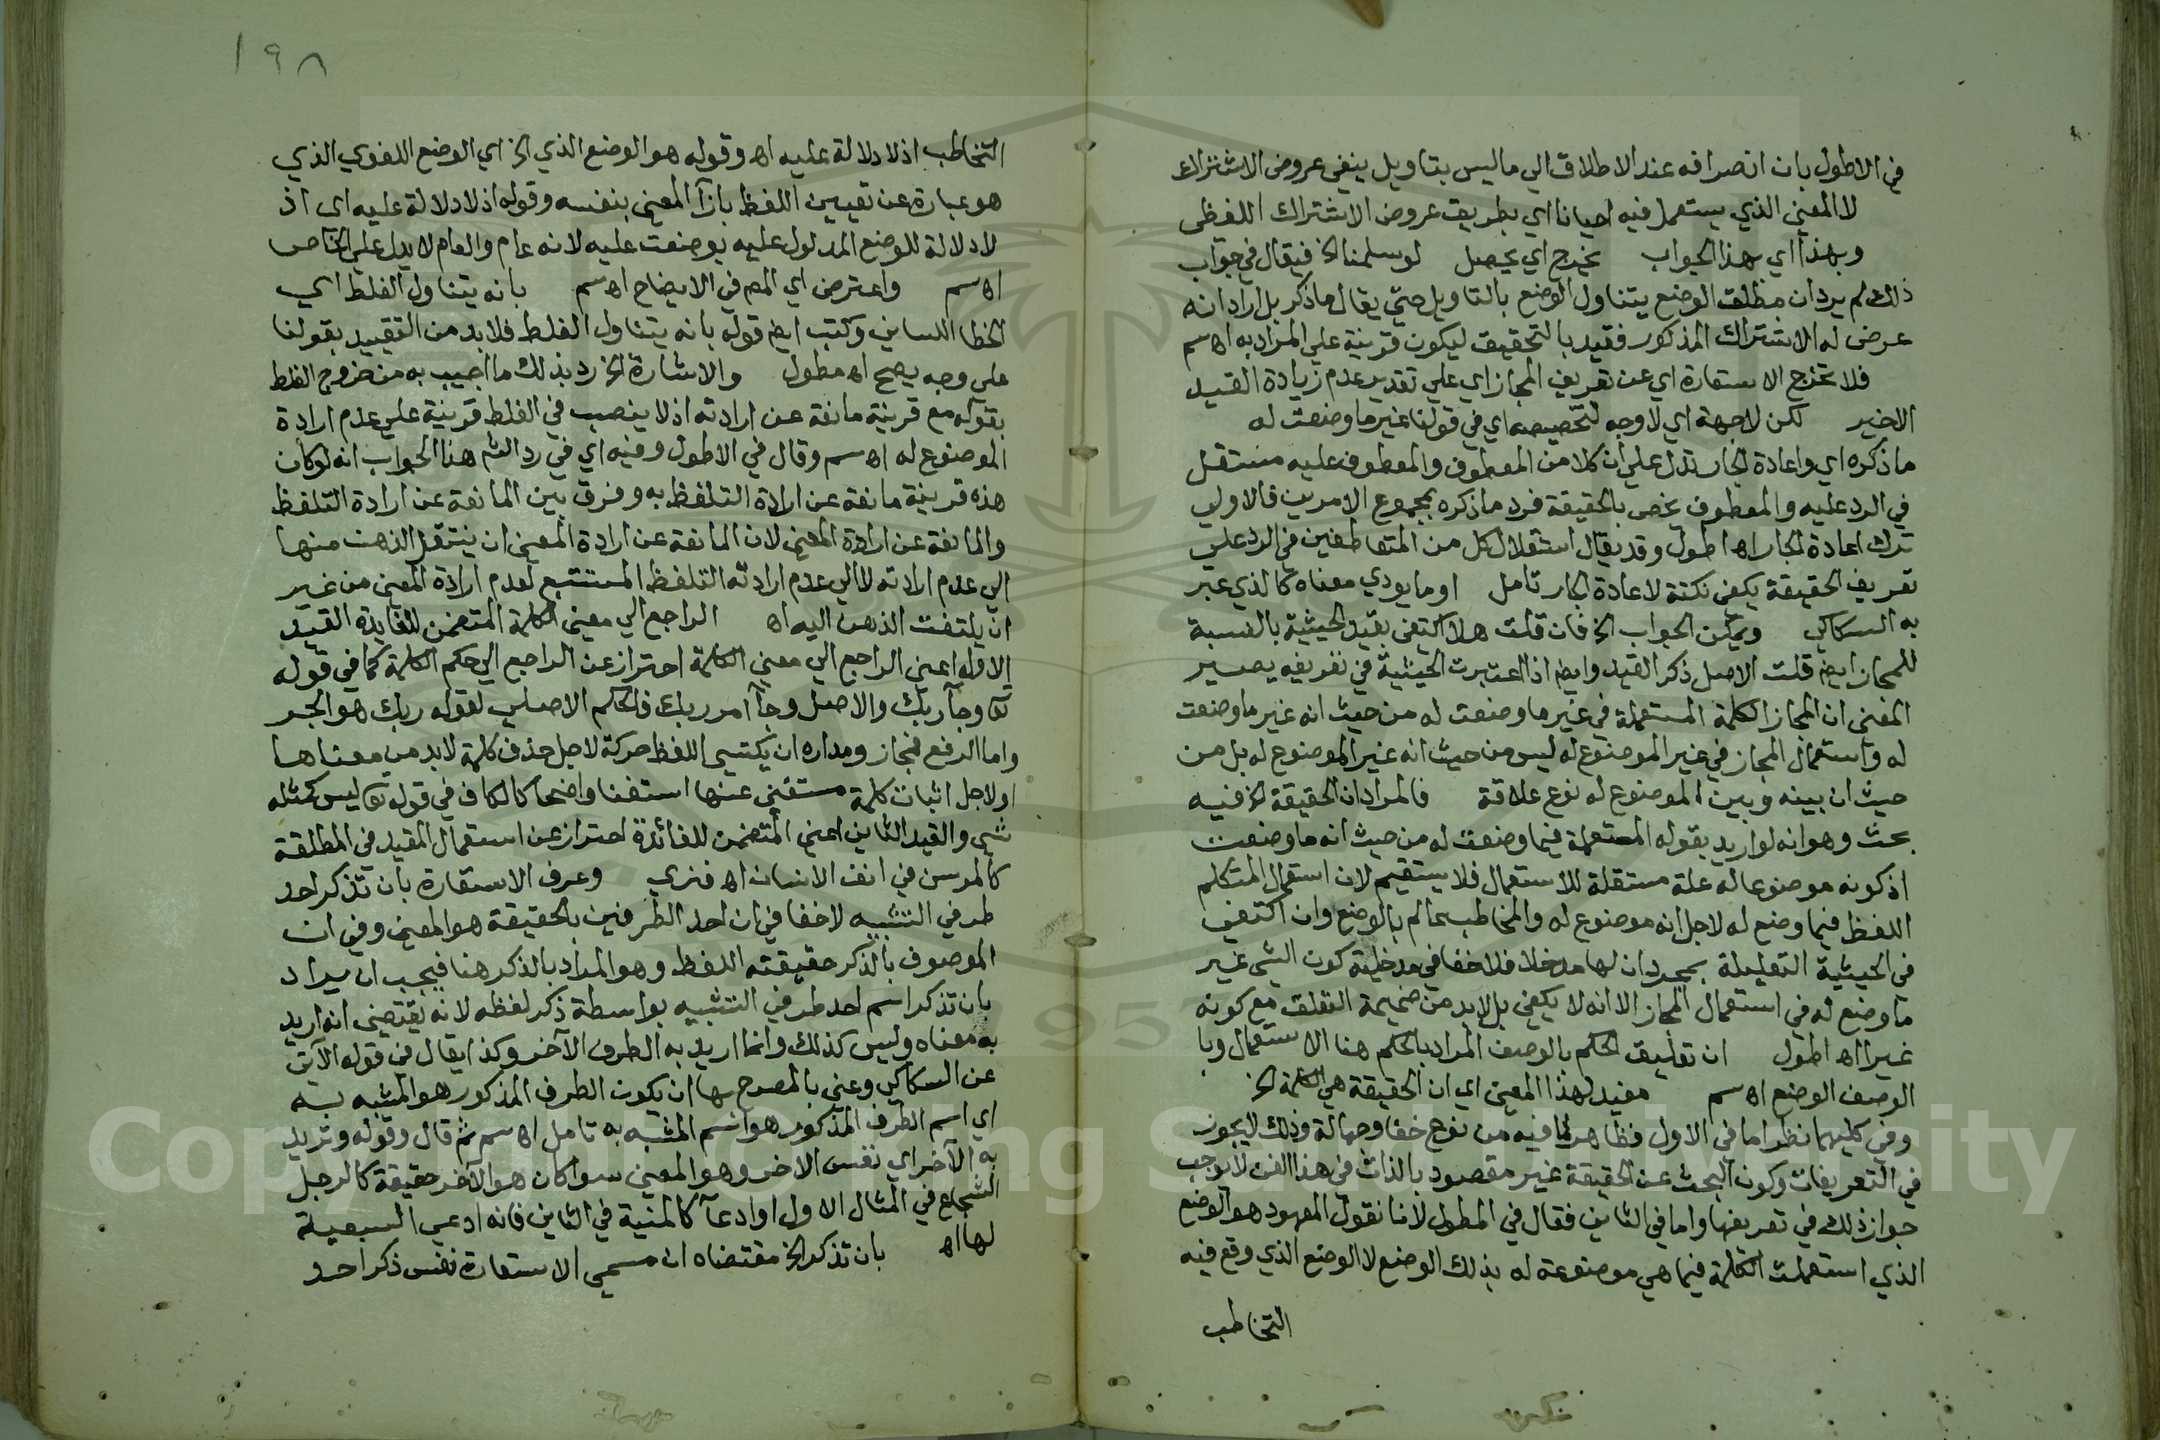 في الاطول بان انصرافه عند الاطلاق الي ما ليس بتاويل ينفي عروض الاشتراك
لا المعني الذي يستعمل فيه احيانا اي بطريق عروض الاشتراك اللفظي
وبهذا اي بهذا الجواب يخرج اي يحصل لو سلمنا الخ فيقال في جواب
ذلك لم يرد ان مطلق الوضع يتناول الوضع بالتاويل حتي يقال ما ذكر بل اراد انه
عرض له الاشتراك المذكور فقيد بالتحقيق ليكون قرينة علي المراد به اه سم
فلا تخرج الاستعارة اي عن تعريف المجاز اي علي تقدير عدم زيادة القيد
الاخير لكن لا جهة اي لا وجه لتخصيصه اي في قولنا غير ما وضعت له
ما ذكره اي واعادة الجار تدل علي ان كلا من المعطوف والمعطوف عليه مستقل
في الرد عليه والمعطوف يخص بالحقيقة فرد ما ذكره بمجموع الامرين فالاولي
ترك اعادة الجار اه اطول وقد يقال استقلال كل من المتعاطفين في الرد علي
تعريف الحقيقة يكفي نكتة لاعادة الجار تامل او ما يودي معناه كالذي عبر
به السكاكي ويمكن الجواب الخ فان قلت هلا اكتفي بقيد الحيثية بالنسبة
للمجاز ايضا قلت الاصل ذكر القيد وايضا اذا اعتبرت الحيثية في تعريفه يصير
المعني ان المجاز الكلمة المستعملة في غير ما وضعت له من حيث انه غير ما وضعت
له واستعمال المجاز في غير الموضوع له ليس من حيث انه غير الموضوع له بل من
حيث ان بينه وبين الموضوع له نوع علاقة فالمراد ان الحقيقة الخ فيه
بحث وهو انه لو اريد بقوله المستعملة فيما وضعت له من حيث انه ما وضعت
اذ كونه موضوعا له علة مستقلة للاستعمال فلا يستقيم لان استعمال المتكلم
اللفظ فيما وضع له لاجل انه موضوع له والمخاطب عالم بالوضع وان اكتفي
في الحيثية التعليلة بمجرد ان لها مدخلا فلا خفا في مدخلية كون الشي غير
ما وضع له في استعمال المجاز الا انه لا يكفي بل لابد من ضميمة التعلق مع كونه
غيرا اه اطول ان تعليق الحكم بالوصف المراد بالحكم هنا الاستعمال وبا
الوصف الوضع اه سم مفيد لهذا المعني اي ان الحقيقة هي الكلمة الخ
وفي كليهما نظر اما في الاول فظاهر لما فيه من نوع خفا وجهالة وذلك لا يجوز
في التعريفات وكون البحث عن الحقيقة غير مقصود بالذات في هذا الفن لا يوجب
جواز ذلك في تعريفها واما في الثاني فقال في المطول لانا نقول المعهود هو الوضع
الذي استعملت الكلمة فيما هي موضوعة له بذلك الوضع لا الوضع الذي وقع فيه
التخاطب
١٩٨
التخاطب اذ لا دلالة عليه اه وقوله هو الوضع الذي الخ اي الوضع اللغوي الذي
هو عبارة عن تعيين اللفظ بازآ المعني بنفسه وقوله اذ لا دلالة عليه اي اذ
لا دلالة للوضع المدلول عليه بوضعت عليه لانه عام والعام لا يدل علي الخاص
اه سم واعترض اي المص في الايضاح اه سم بانه يتناول الغلط اي
الخطا اللساني وكتب ايضا قوله بانه يتناول الغلط فلا بد من التقييد بقولنا
علي وجه يصح اه مطول والاشارة الخ رد بذلك ما اجيب به من خروج الغلط
بقوله مع قرينة مانعة عن ارادته اذ لا ينصب في الغلط قرينة علي عدم ارادة
الموضوع له اه سم وقال في الاطول وفيه اي في رد الشم هذا الجواب انه لو كان
هذه قرينة مانعة عن ارادة التلفظ به وفرق بين المانعة عن ارادة التلفظ
والمانعة عن ارادة المعني لان المانعة عن ارادة المعني ان ينتقل الذهن منها
الي عدم ارادته لا الي عدم ارادته التلفظ المستتبع لعدم ارادة المعني من غير
ان يلتفت الذهن اليه اه الراجع الي معني الكلمة المتضمن للفايدة القيد
الاول اعني الراجع الي معني الكلمة احتراز عن الراجع الي حكم الكلمة كما في قوله
تع وجآ ربك والاصل وجآ امر ربك فالحكم الاصلي لقوله ربك هو الجر
واما الرفع فمجاز ومداره ان يكتسي اللفظ حركة لاجل حذف كلمة لابد من معناها
او لاجل اثبات كلمة مستغني عنها استغنا واضحا كالكاف في قوله تع ليس كمثله
شي والقيد الثاني اعني المتضمن للفائدة احتراز عن استعمال المقيد في المطلقة
كالمرسن في انف الانسان اه فنري وعرف الاستعارة بان تذكر احد
طرفي التشبيه لا خفا في ان احد الطرفين بالحقيقة هو المعني وفي ان
الموصوف بالذكر حقيقته اللفظ وهو المراد بالذكر هنا فيجب ان يراد
بان تذكر اسم احد طرفي التشبيه بواسطة ذكر لفظه لانه يقتضي انه اريد
به معناه وليس كذلك وانما اريد به الطرف الآخر وكذا يقال في قوله الآتي
عن السكاكي وعني بالمصرح بها ان يكون الطرف المذكور هو المشبه به
اي اسم الطرف المذكور هو اسم المشبه به تامل اه سم ثم قال وقوله وتريد
به الآخر اي نفس الاخر وهو المعني سوا كان هو الآخر حقيقة كالرجل
الشجاع في المثال الاول او ادعآ كالمنية في الثاني فانه ادعي السبعية
لها اه بان تذكر الخ مقتضاه ان مسمي الاستعارة نفس ذكر احد